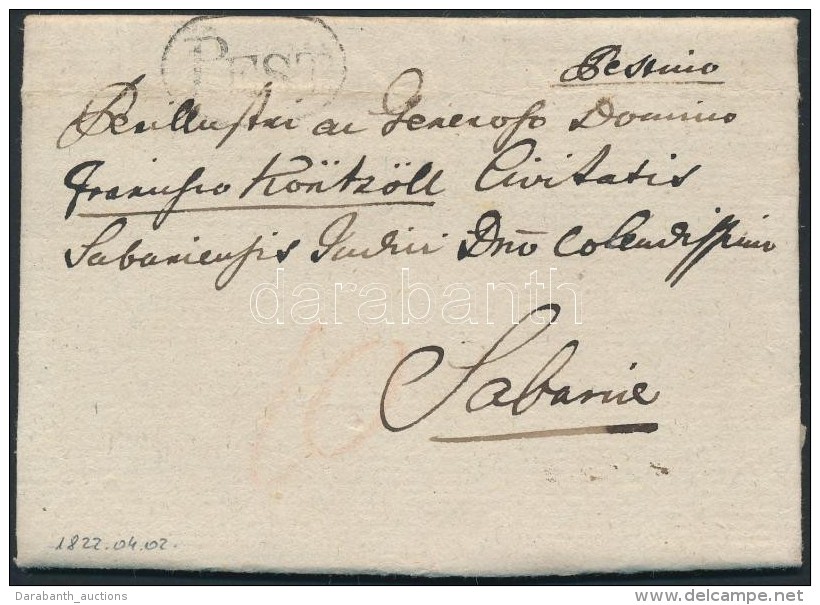 PEST
Pestino
Perillustri ac Generoso Domino
Francisco Köntzöll Civitatis
Sabariensis Judici Dnō Colendissimo
darabanth
10
Sabarie
1822.04.02.
Darabanth_auctions
www.delcampe.net